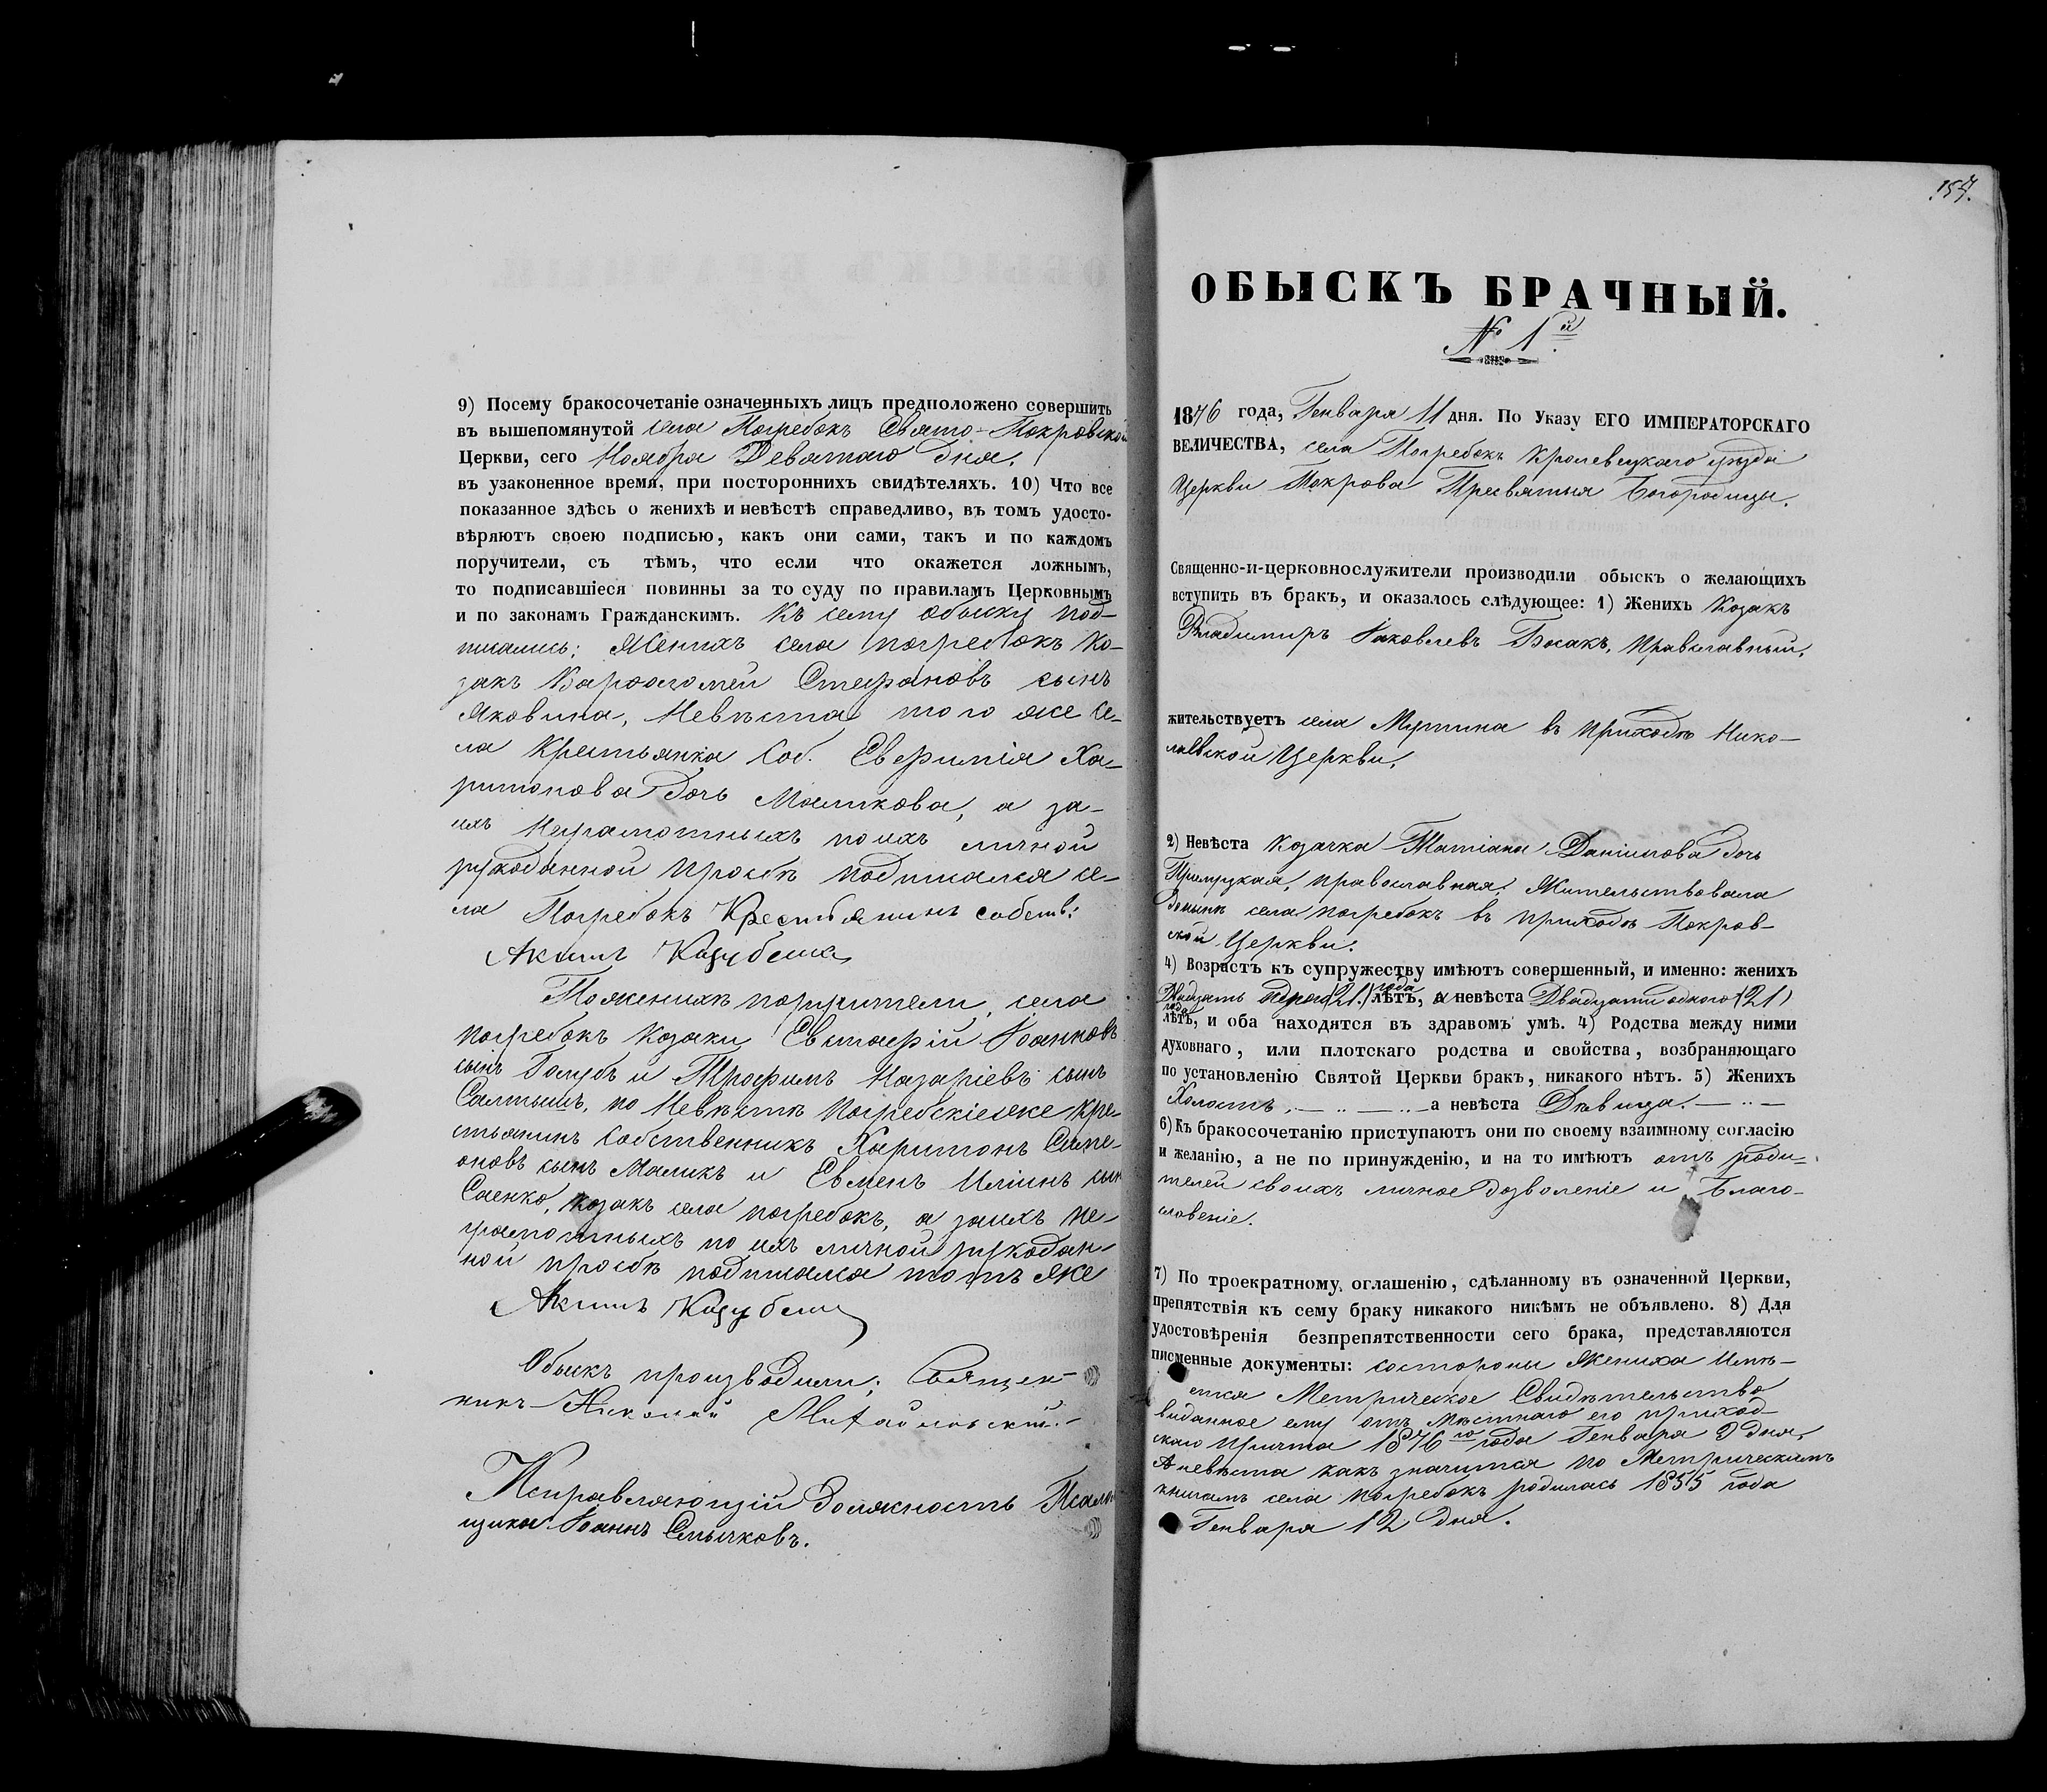 9) Посему бракосочетаніе означенныхъ лицъ предположено совершить
въ вышепомянутой села Погребокъ Свято-Покровской
Церкви, сего Ноября Девятаго дня.
въ узаконенное время, при постороннихъ свидѣтеляхъ. 10) Что все
показанное здѣсь о женихѣ и невѣстѣ справедливо, въ томъ удосто-
вѣряютъ своею подписью, какъ они сами, такъ и по каждомъ
поручители, съ тѣмъ, что если что окажется ложнымъ,
то подписавшіеся повинны за то суду по правиламъ Церковнымъ
и по законамъ Гражданскимъ. Къ сему обыску под-
писались: Женихъ села погребокъ ко-
закъ Варфоломей Стефановъ сынъ
Яковина, Невѣста того же се-
ла Крестьянка Соб. Евфимія Ха-
ритонова дочь Маликова, а за
ихъ неграмотныхъ по ихъ личной
рукоданной прозбѣ подписался се-
ла Погребокъ Крестьянинъ собств:
Акимъ
По женихѣ поручители, села
погребокъ козаки Евстафій Іоанновъ
сынъ Голубъ и Трофимъ Назаріевъ сынъ
по Невѣстѣ Погребскіе же кре-
стьянинъ собственникъ Харитонъ Симе-
оновъ сынъ Маликъ и Евменъ Иліинъ сын
Саенко, козакъ села погребокъ, а за ихъ не-
грамотныхъ по ихъ личной рукодан-
ной прозбѣ подписался тотъ же
Акимъ
Обыскъ производили; Священ-
никъ Николай Михайловскій.
Исправляющій должность Псалом
щика Іоаннъ Смычковъ.
157.
ОБЫСКЪ БРАЧНЫЙ.
№ 1й
1876 года, Генваря 11 дня. По Указу ЕГО ИМПЕРАТОРСКАГО
ВЕЛИЧЕСТВА, села Погребокъ Кролевецкаго уѣзда
Церкви Покрова Пресвятыя Богородицы.
Священно-и-церковнослужители производили обыскъ о желающихъ
вступить въ бракъ, и оказалось слѣдующее: 1) Женихъ Козакъ
Владимиръ Іаковлевъ православный.
жительствуетъ села Мутина въ приходѣ Нико-
лаевской Церкви.
2) Невѣста Козачка Татіана Даніилова дочь
православная. Жительствовала
села погребокъ въ приходѣ Покров-
ской Церкви.
4) Возрастъ къ супружеству имѣютъ совершенный, и именно: женихъ
Двадцать (21) года лѣтъ, а невѣста Двадцати одного (21)
года лѣтъ, и оба находятся въ здравомъ умѣ. 4) Родства между ними
духовнаго, или плотскаго родства и свойства, возбраняющаго
по установленію Святой Церкви бракъ, никакого нѣтъ. 5) Женихъ
Холостъ, а невѣста Дѣвица.
6) Къ бракосочетанію приступаютъ они по своему взаимному согласію
и желанію, а не по принужденію, и на то имѣютъ отъ роди-
телей своихъ личное дозволеніе и Благо-
словеніе.
7) По троекратному, оглашенію, сдѣланному въ означенной Церкви,
препятствія къ сему браку никакого никѣмъ не объявлено. 8) Для
удостовѣренія безпрепятственности сего брака, представляются
писменные документы: состороны Жениха Имѣ-
ется Метрическое Свидѣтельство
виданное ему отъ Мѣстнаго его приход-
скаго причта 1876го года Генваря 9 дня,
А невѣста какъ значится по Метрическимъ
книгамъ села погребокъ родилась 1855 года
Генваря 12 дня.